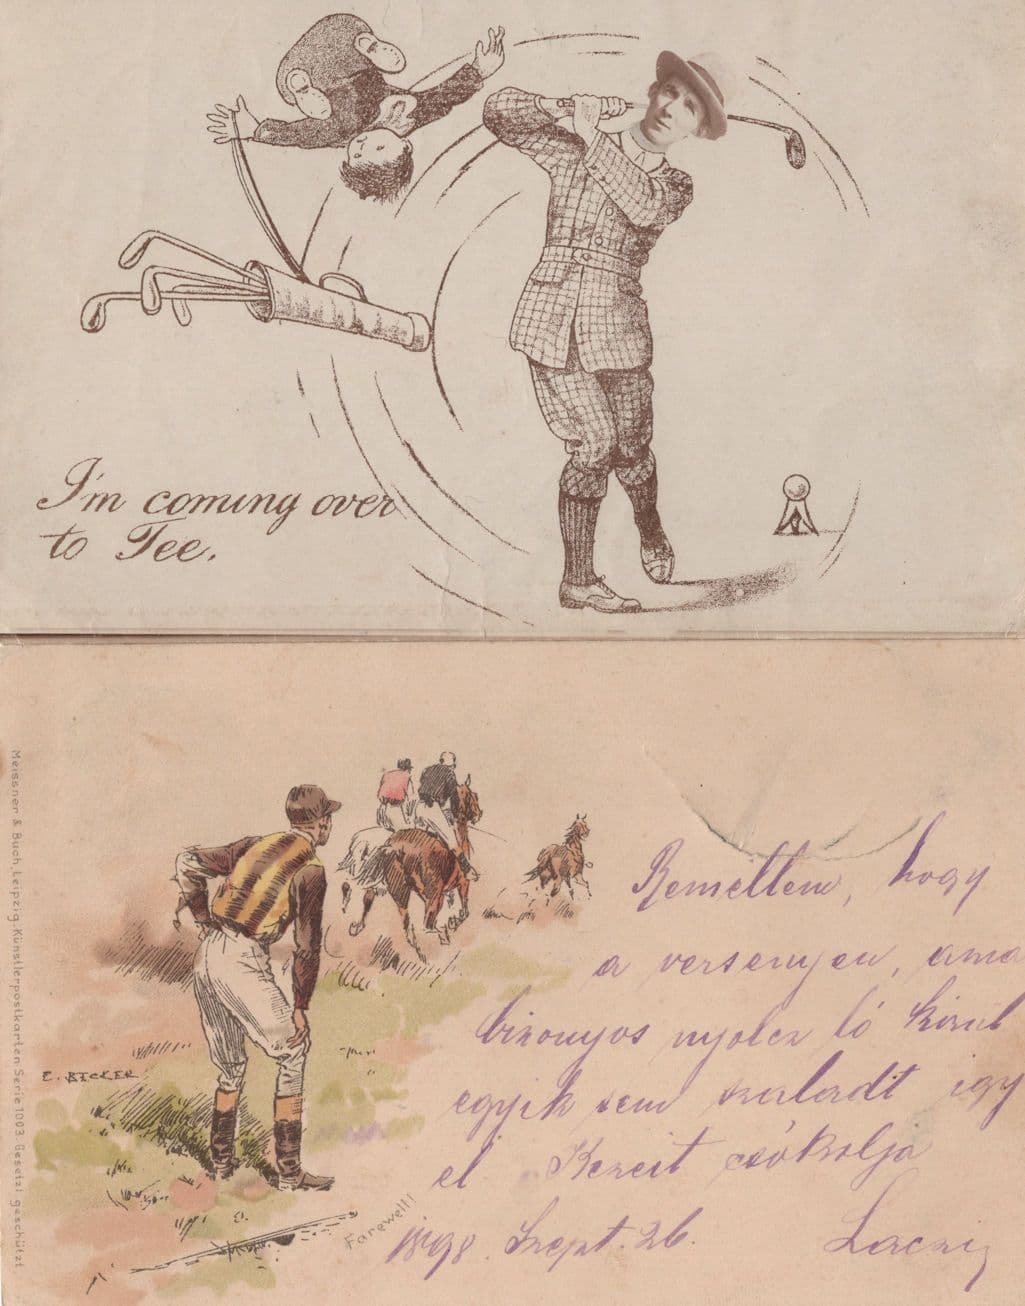 I'm coming over
to Tee.
Meissner & Buch, Leipzig. Künstlerpostkarten Serie 1003. Gesetzl. geschützt
E. BECKER
Farewell!
Remellem, hogy
a versenyen, ama
bizonyos nyolcz ló közül
egyik sem szaladt így
el. Kezeit csókolja
1898. Szept. 26. Laczi